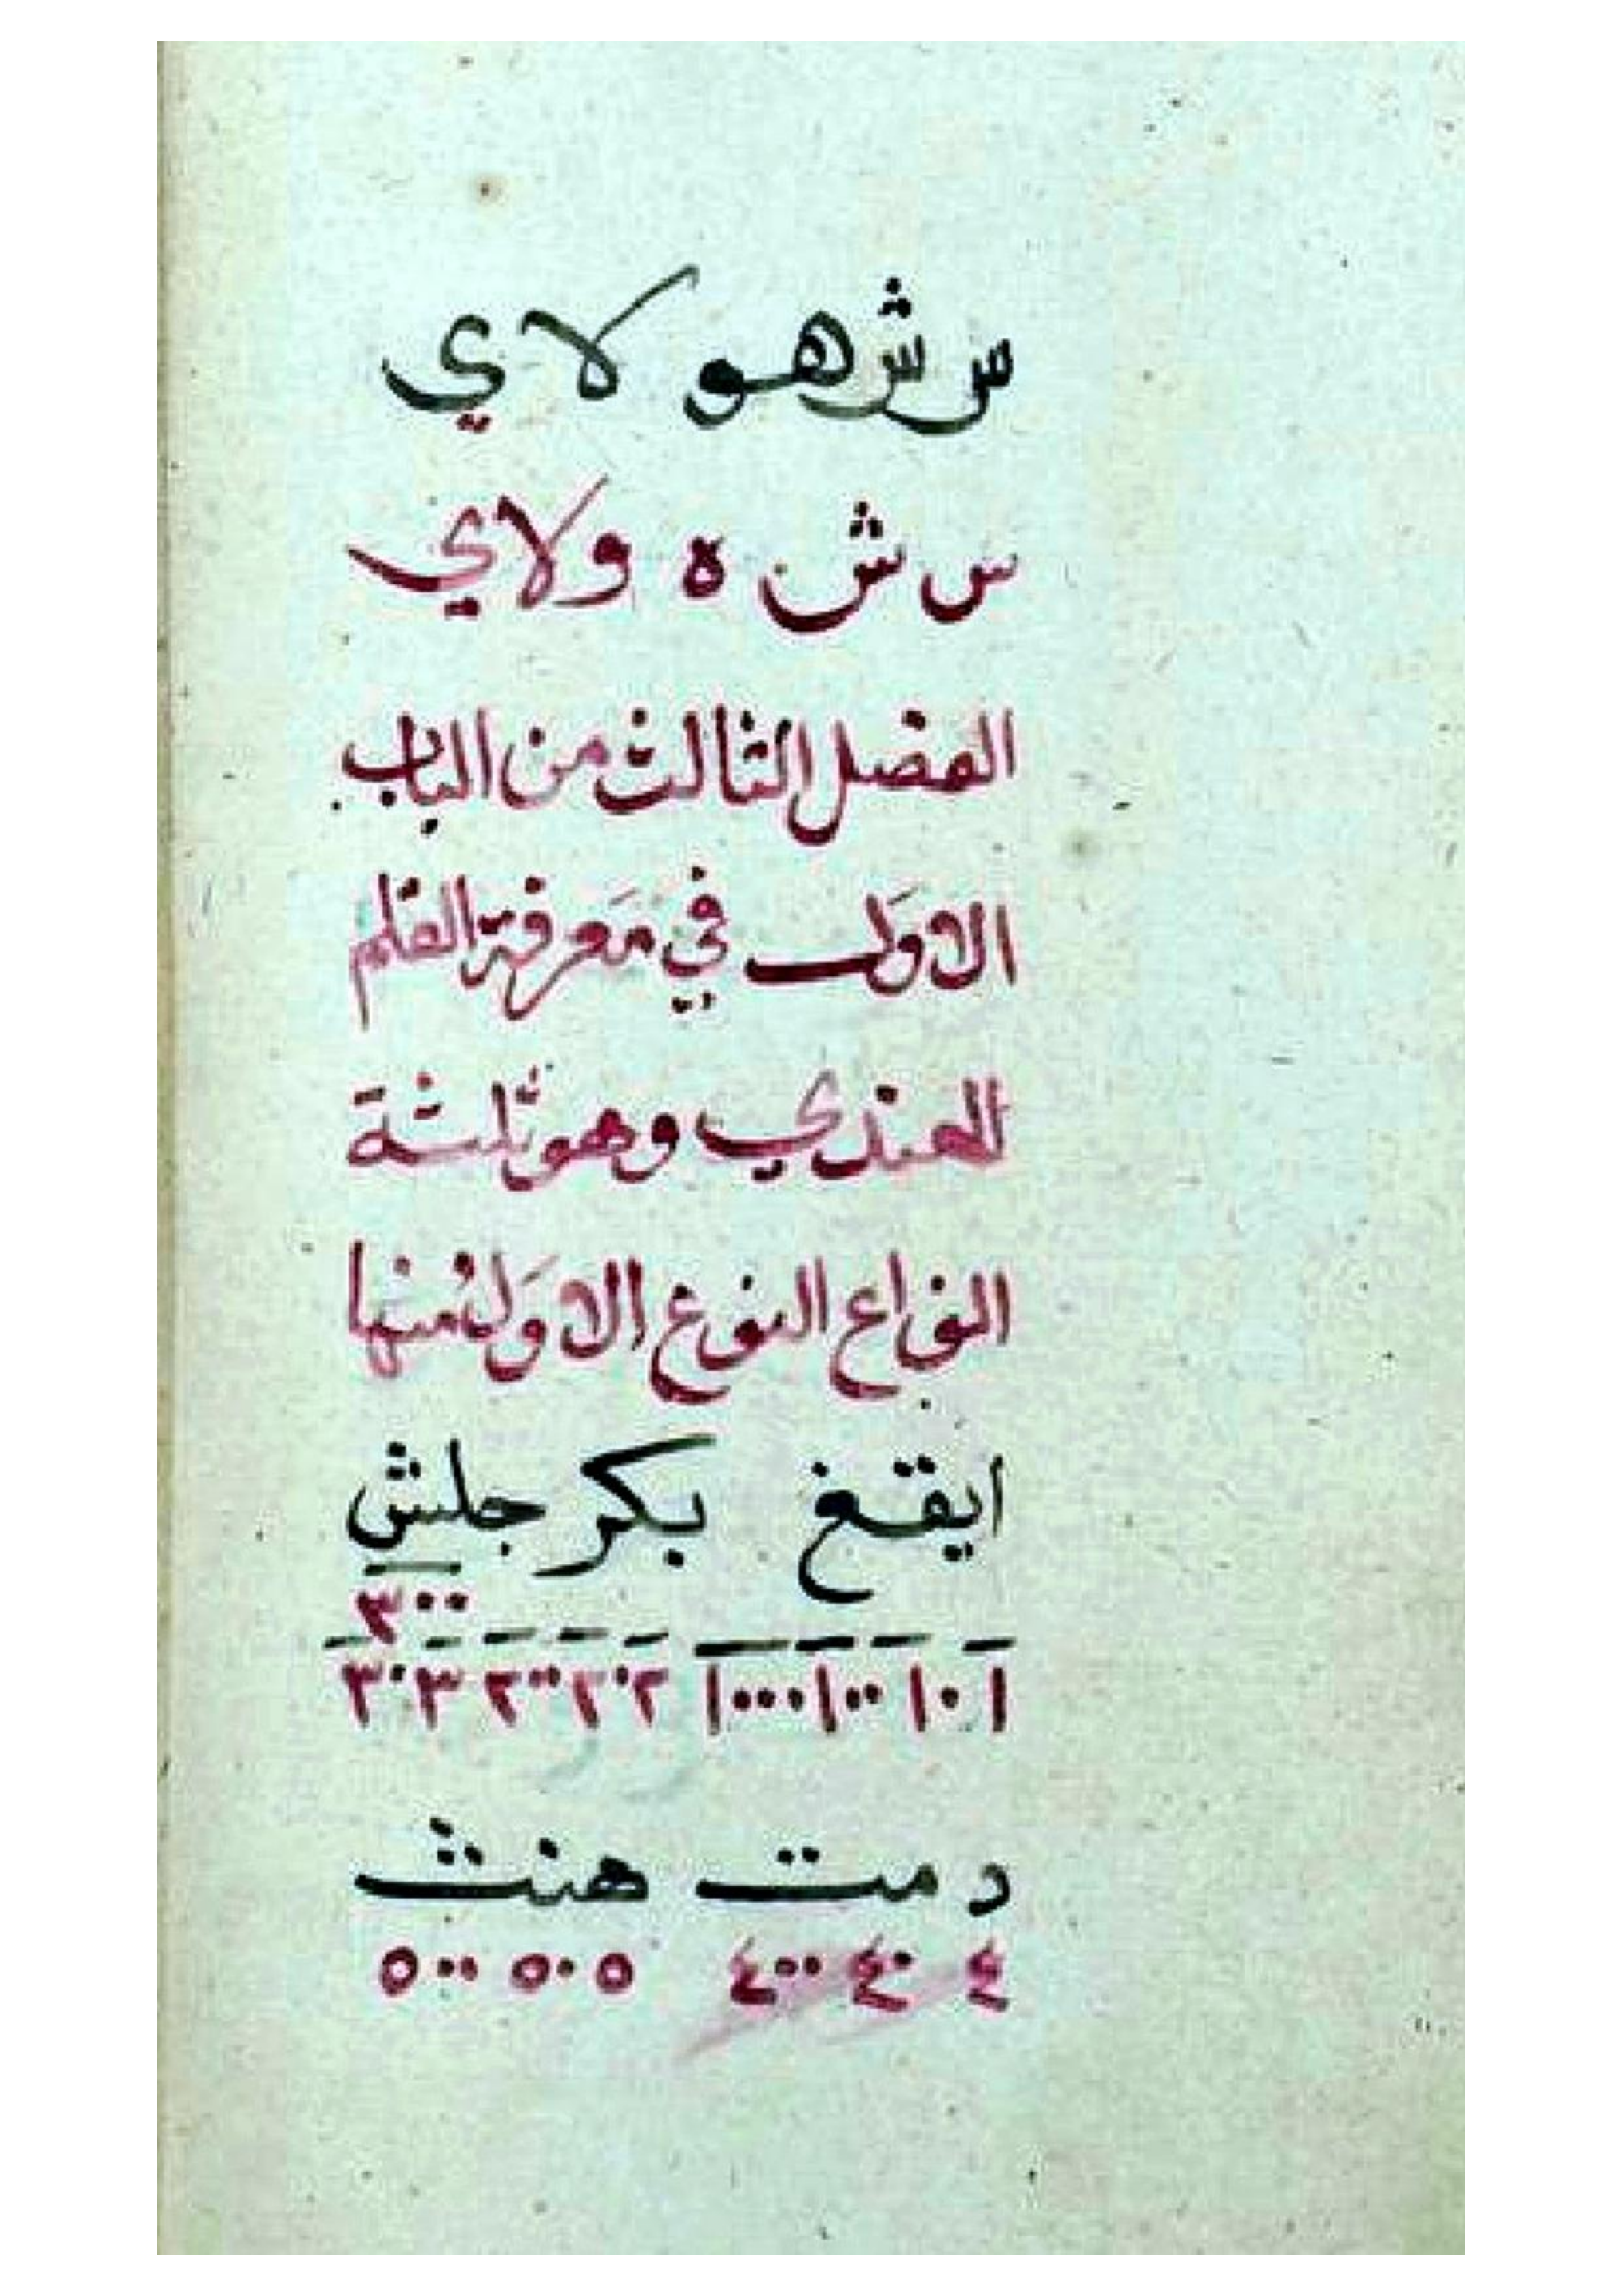 س ش هو لاي
س ش ه ولاي
الفصل الثالث من الباب
الاوَل في مَعرفة القلم
الهندي وهو ثلثة
انواع النوع الاوَل منها
ايقغ بكر جلش
٣٠٠
١ ١٠ ١٠٠ ١٠٠٠ ٢ ٢٠ ٢٠٠ ٣ ٣٠
د مت هنث
٤ ٤٠ ٤٠٠ ٥ ٥٠ ٥٠٠